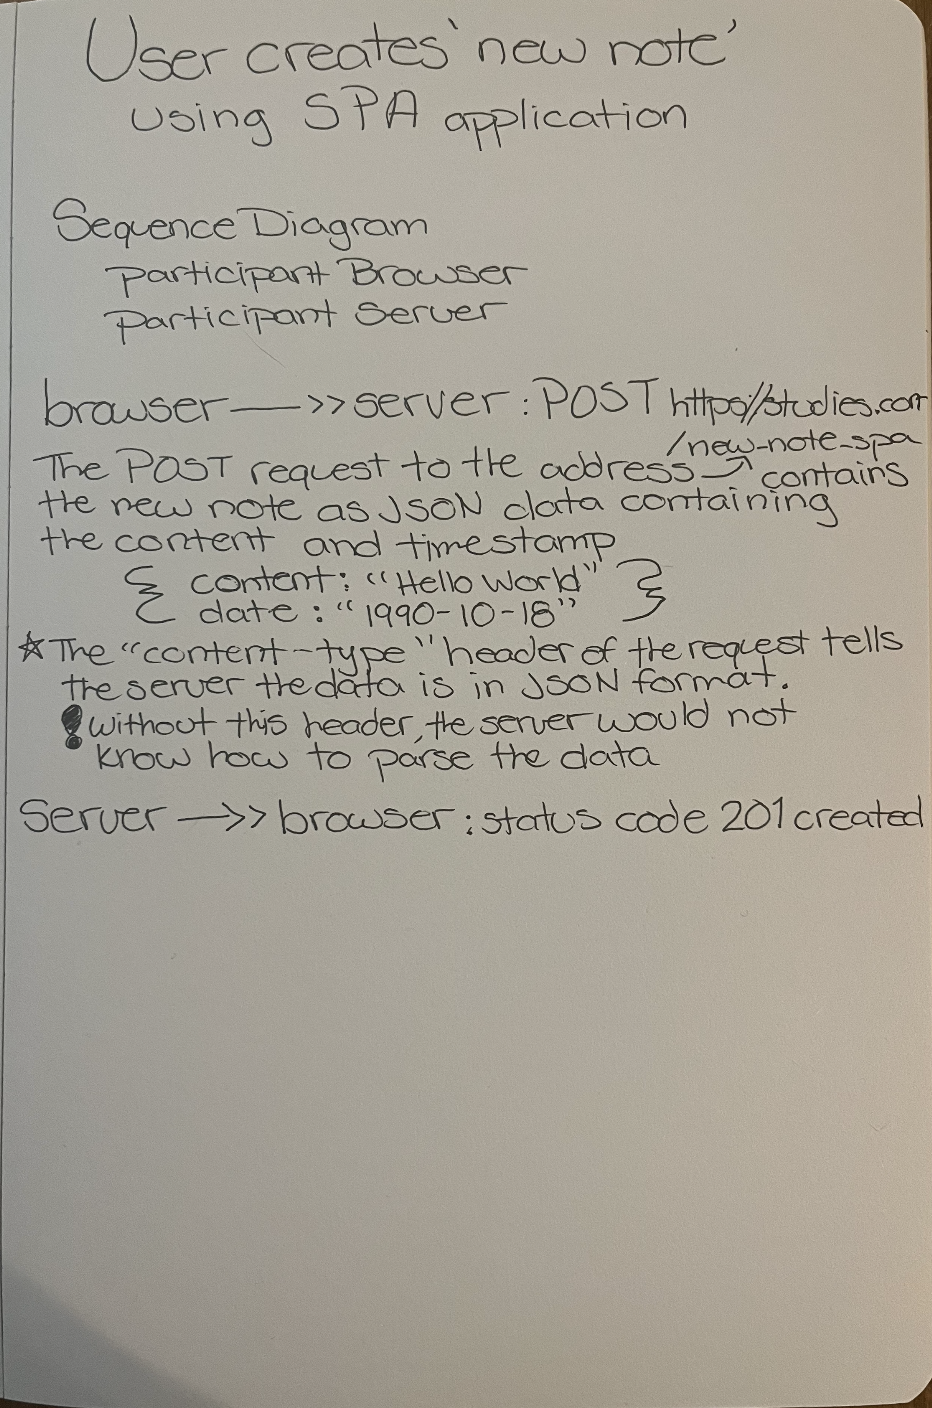 User creates 'new note'
using SPA application
Sequence Diagram
participant Browser
participant Server
browser —>> server : POST https://studies.com
/new-note_spa
The POST request to the address → contains
the new note as JSON data containing
the content and timestamp
{ content: "Hello World" }
date : "1990-10-18"
☆ The "content-type" header of the request tells
the server the data is in JSON format.
! Without this header, the server would not
know how to parse the data
Server —>> browser : status code 201 created